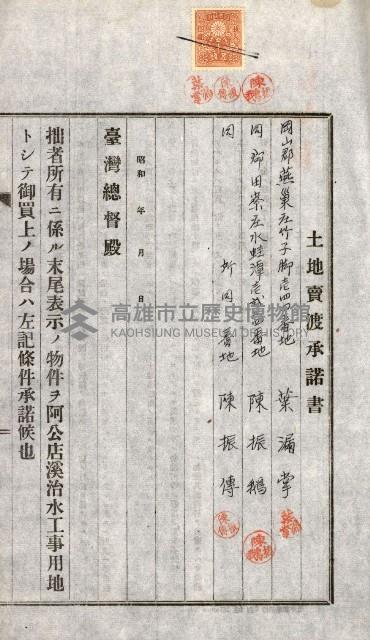 土地賣渡承諾書
岡山郡燕巢庄竹子脚壱四四番地 葉漏掌
同郡田寮庄水蛙潭壱貳四番地 陳振鵝
同 所同番地 陳振傳
昭和 年 月 日
臺灣總督殿
拙者所有ニ係ル末尾表示ノ物件ヲ阿公店溪治水工事用地
トシテ御買上ノ場合ハ左記條件承諾候也
高雄市立歷史博物館
KAOHSIUNG MUSEUM OF HISTORY